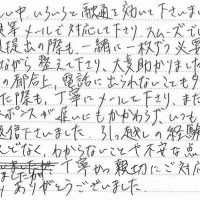 い中、いろいろと融通を効いて下さいまし
絡等メールで対応して下り、スムーズでし
提出の際も、一緒に一枚ずつ必要
ながら整えて下り、大変助かりました
の都合上、電話に出られないことも多
た際も、丁寧にメールして下り、また
スポンスが遅いにもかかわらず、いつも
返信下さいました。引っ越しの経験
んどなく、わからないことや不安な点
丁寧かつ親切にご対応
ありがとうございました。